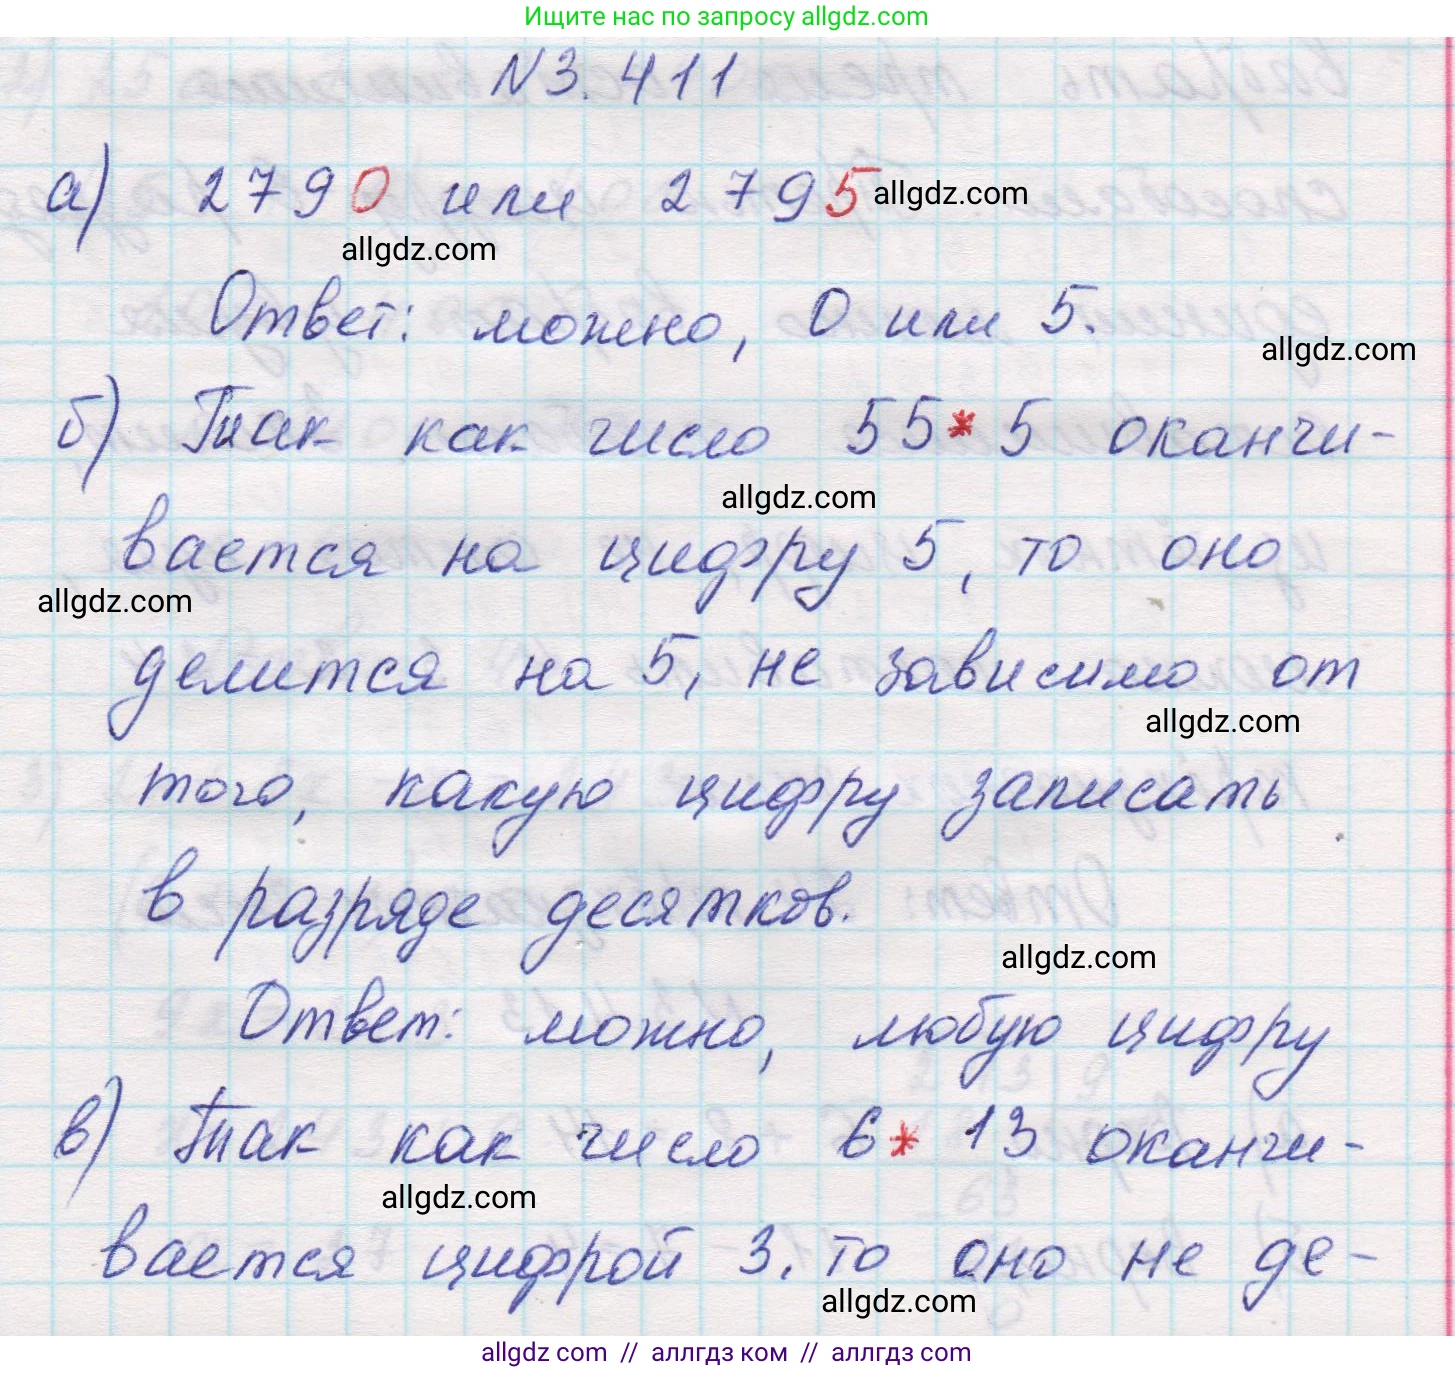 Ищите нас по запросу allgdz.com
N3.411
а) 2790 или 2795 allgdz.com
allgdz.com
Ответ: можно, 0 или 5.
allgdz.com
б) Так как число 55*5 оканчи-
allgdz.com
вается на цифру 5, то оно
allgdz.com
делится на 5, не зависимо от
allgdz.com
того, какую цифру записать
в разряде десятков.
allgdz.com
Ответ: можно, любую цифру
в) Так как число 6*13 оканчи-
allgdz.com
вается цифрой 3, то оно не де-
allgdz.com
allgdz com // аллгдз ком // аллгдз com